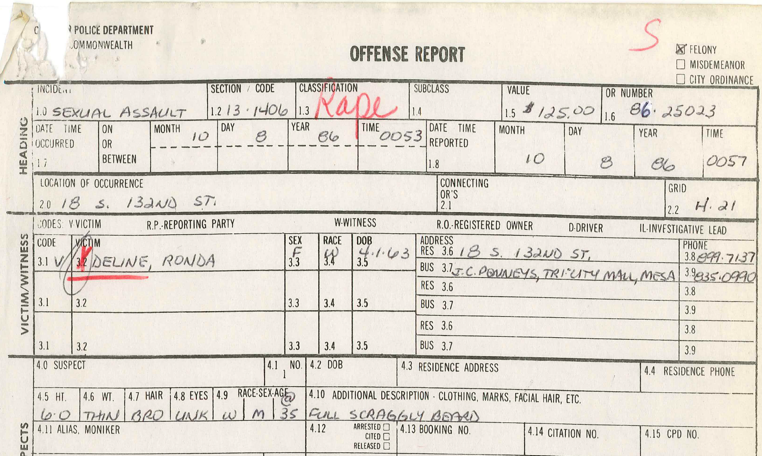 R POLICE DEPARTMENT
OMMONWEALTH
OFFENSE REPORT
S
FELONY
MISDEMEANOR
CITY ORDINANCE
HEADING
INCIDENT
1.0 SEXUAL ASSAULT
SECTION / CODE
1.2 13-1406
CLASSIFICATION
1.3 Rape
SUBCLASS
1.4
VALUE
1.5 $125.00
OR NUMBER
1.6 86-25023
DATE TIME OCCURRED
1.7
ON OR BETWEEN
MONTH 10 DAY 8 YEAR 86 TIME 0053
DATE TIME REPORTED
1.8
MONTH 10 DAY 8 YEAR 86 TIME 0057
LOCATION OF OCCURRENCE
2.0 18 S. 132ND ST.
CONNECTING OR'S
2.1
GRID
2.2 H.21
VICTIM/WITNESS
CODES V-VICTIM R.P.-REPORTING PARTY W-WITNESS R.O.-REGISTERED OWNER D-DRIVER IL-INVESTIGATIVE LEAD
CODE VICTIM SEX RACE DOB ADDRESS PHONE
3.1 V 3.2 DELINE, RONDA 3.3 F 3.4 W 3.5 4.1.63
RES 3.6 18 S. 132ND ST. 3.8 899.7137
BUS 3.7 J.C. PENNEYS, TRI-CITY MALL, MESA 3.9 835.0990
3.1 3.2 3.3 3.4 3.5
RES 3.6 3.8
BUS 3.7 3.9
3.1 3.2 3.3 3.4 3.5
RES 3.6 3.8
BUS 3.7 3.9
PECTS
4.0 SUSPECT
4.1 NO. 1
4.2 DOB
4.3 RESIDENCE ADDRESS
4.4 RESIDENCE PHONE
4.5 HT. 6.0
4.6 WT. THIN
4.7 HAIR BRO
4.8 EYES UNK
4.9 RACE-SEX-AGE W M @ 35
4.10 ADDITIONAL DESCRIPTION - CLOTHING, MARKS, FACIAL HAIR, ETC.
FULL SCRAGGLY BEARD
4.11 ALIAS, MONIKER
4.12 ARRESTED
CITED
RELEASED
4.13 BOOKING NO.
4.14 CITATION NO.
4.15 CPD NO.